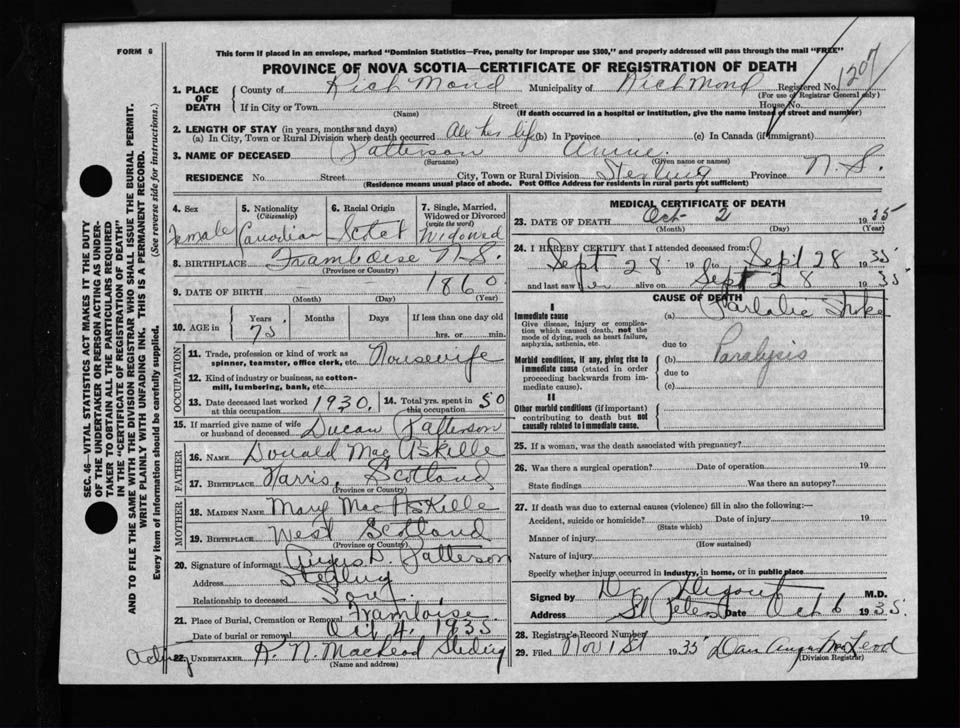 FORM 6
This form if placed in an envelope, marked "Dominion Statistics—Free, penalty for improper use $300," and properly addressed will pass through the mail "FREE"
PROVINCE OF NOVA SCOTIA—CERTIFICATE OF REGISTRATION OF DEATH
1. PLACE OF DEATH County of Richmond Municipality of Richmond Registered No. 1207
(For use of Registrar General only)
If in City or Town Street House No.
(Name) (If death occurred in a hospital or institution, give the name instead of street and number)
2. LENGTH OF STAY (in years, months and days)
(a) In City, Town or Rural Division where death occurred All her life (b) In Province (c) In Canada (if immigrant)
3. NAME OF DECEASED Patterson Annie
(Surname) (Given name or names)
RESIDENCE No. Street City, Town or Rural Division Sterling Province N.S.
(Residence means usual place of abode. Post Office Address for residents in rural parts not sufficient)
4. Sex Female
5. Nationality (Citizenship) Canadian
6. Racial Origin Scotch
7. Single, Married, Widowed or Divorced (write the word) Widowed
8. BIRTHPLACE Framboise N.S.
(Province or Country)
9. DATE OF BIRTH 1860
(Month) (Day) (Year)
10. AGE in Years 75 Months Days If less than one day old hrs. or min.
OCCUPATION
11. Trade, profession or kind of work as spinner, teamster, office clerk, etc. Housewife
12. Kind of industry or business, as cotton-mill, lumbering, bank, etc.
13. Date deceased last worked at this occupation 1930. 14. Total yrs. spent in this occupation 50
15. If married give name of wife or husband of deceased Ducan Patterson
FATHER
16. NAME Donald Mac Askille
17. BIRTHPLACE Harris, Scotland
(Province or Country)
MOTHER
18. MAIDEN NAME Mary Mac Askille
19. BIRTHPLACE West Scotland
(Province or Country)
20. Signature of informant Angus D. Patterson
Address Sterling
Relationship to deceased Son
21. Place of Burial, Cremation or Removal Framboise
Date of burial or removal Oct 4, 1935
Acting 22. UNDERTAKER A. N. MacLeod Sterling
(Name and address)
MEDICAL CERTIFICATE OF DEATH
23. DATE OF DEATH Oct- 2 1935
(Month) (Day) (Year)
24. I HEREBY CERTIFY that I attended deceased from:
Sept 28 19 to Sept 28 1935
and last saw her alive on Sept 28 1935
CAUSE OF DEATH
I
Immediate cause (a)
Give disease, injury or complication which caused death, not the mode of dying, such as heart failure, asphyxia, asthenia, etc.
due to
Morbid conditions, if any, giving rise to immediate cause (stated in order proceeding backwards from immediate cause). (b) Paralysis
due to
(c)
II
Other morbid conditions (if important) contributing to death but not causally related to immediate cause.
25. If a woman, was the death associated with pregnancy?
26. Was there a surgical operation? Date of operation 19
State findings Was there an autopsy?
27. If death was due to external causes (violence) fill in also the following:—
Accident, suicide or homicide? Date of injury 19
(State which)
Manner of injury
(How sustained)
Nature of injury
Specify whether injury occurred in industry, in home, or in public place
Signed by Dr. M.D.
Address St Peters Date Oct 6 1935.
28. Registrar's Record Number
29. Filed Nov 1st 1935 Dan Angus MacLeod
(Division Registrar)
SEC. 46—VITAL STATISTICS ACT MAKES IT THE DUTY
OF THE UNDERTAKER OR PERSON ACTING AS UNDER-
TAKER TO OBTAIN ALL THE PARTICULARS REQUIRED
IN THE "CERTIFICATE OF REGISTRATION OF DEATH"
AND TO FILE THE SAME WITH THE DIVISION REGISTRAR WHO SHALL ISSUE THE BURIAL PERMIT.
WRITE PLAINLY WITH UNFADING INK. THIS IS A PERMANENT RECORD.
Every item of Information should be carefully supplied. (See reverse side for instructions.)